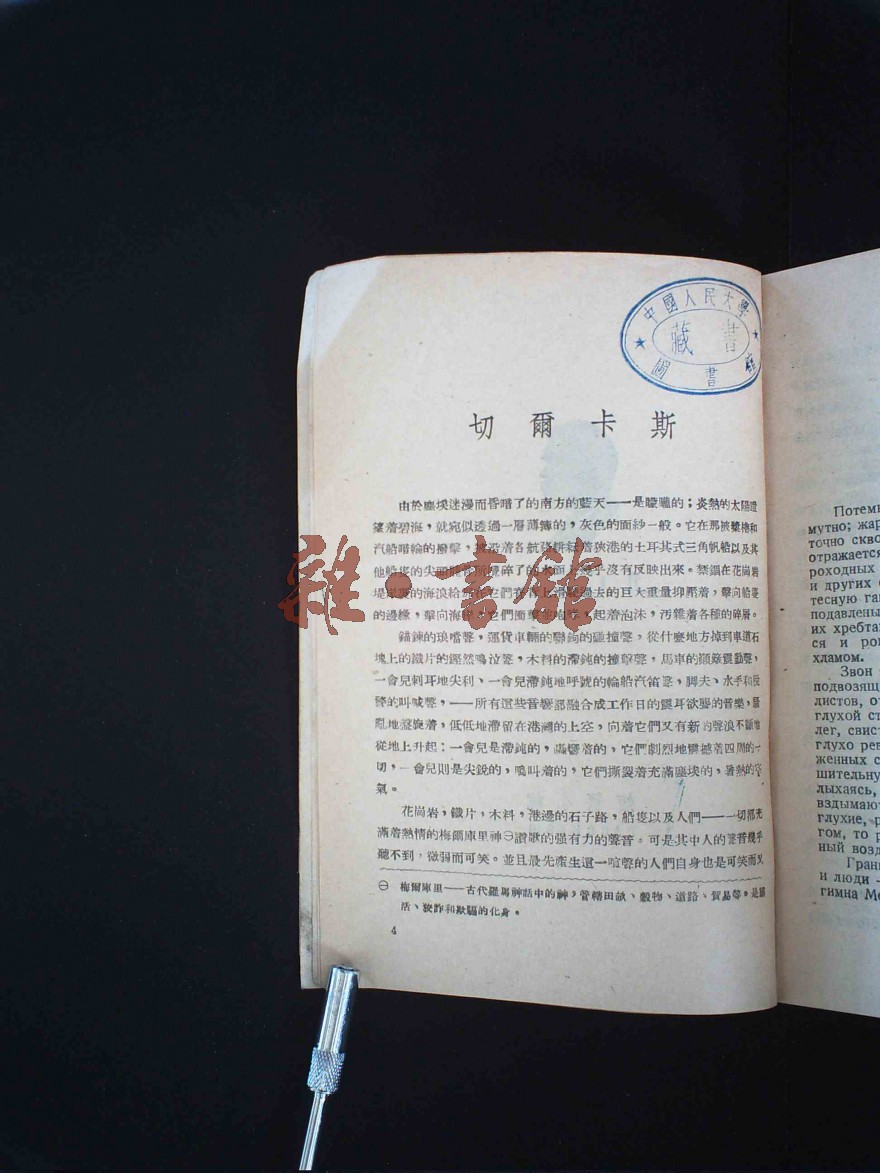 中國人民大學
藏書
圖書館
切爾卡斯
由於塵埃迷漫而昏暗了的南方的藍天——是朦朧的；炎熱的太陽證
望着碧海，就宛似透過一層薄薄的，灰色的面紗一般。它在那被槳櫓和
汽船暗輪的撥擊，被沿着各航路耕耘着狹港的土耳其式三角帆船以及其
他船隻的尖頭
碎了的水面上幾乎沒有反映出來。禁錮在花崗岩
的海浪給
它們在
上滑
過去的巨大重量抑壓着，擊向船隻
的邊緣，擊向海岸，它們衝擊並咆哮，起着泡沫，汚雜着各種的碎屑。
錨鍊的琅噹聲，運貨車輛的聯鉤的碰撞聲，從什麼地方掉到車道石
塊上的鐵片的鏗然鳴泣聲，木料的滯鈍的撞擊聲，馬車的顛簸震動聲，
一會兒刺耳地尖利、一會兒滯鈍地呼號的輪船汽笛聲，脚夫、水手和稅
警的叫喊聲，——所有這些音響都融合成工作日的震耳欲聾的音樂，騷
亂地盤旋着，低低地滯留在港灣的上空，向着它們又有新的聲浪不斷地
從地上升起：一會兒是滯鈍的，嘶響着的，它們劇烈地震撼着四周的一
切，一會兒則是尖銳的，鳴叫着的，它們撕裂着充滿塵埃的，暑熱的空
氣。
花崗岩，鐵片，木料，港邊的石子路，船隻以及人們——一切都充
滿着熱情的梅爾庫里神㊀讚歌的强有力的聲音。可是其中人的聲音幾乎
聽不到，微弱而可笑。並且最先產生這一喧聲的人們自身也是可笑而又
㊀ 梅爾庫里——古代羅馬神話中的神，管轄田畝、穀物、道路、貿易等。是靈
活、狡詐和欺騙的化身。
4
雜·書館
Потемн
мутно; жар
точно сквоз
отражается
роходных
и других с
тесную га
подавлены
их хребта
ся и ро
хламом.
Звон
подвозящ
дистов, от
глухой ст
лег, свист
глухо рев
женных с
шительну
дыхаясь,
вздымают
глухие, р
гом, то р
ный возд
Грани
и люди —
гимна Ме